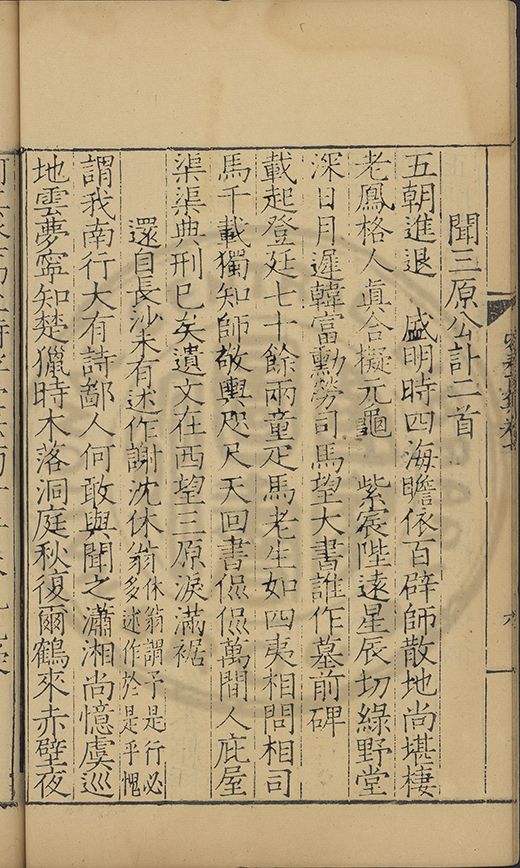 聞三原公訃二首
五朝進退　盛明時四海瞻依百辟師散地尚堪棲
老鳳格人眞合擬元龜　紫宸陛遠星辰切綠野堂
深日月遲韓富勳勞司馬望大書誰作墓前碑
載起登廷七十餘兩童疋馬老生如四夷相問相司
馬千載獨知師敬輿咫尺天回書侃侃萬間人庇屋
渠渠典刑已矣遺文在西望三原淚滿裾
還自長沙未有述作謝沈休翁
休翁謂予是行必
多述作於是乎愧
謂我南行大有詩鄙人何敢與聞之瀟湘尚憶虞巡
地雲夢寧知楚獵時木落洞庭秋復爾鶴來赤壁夜